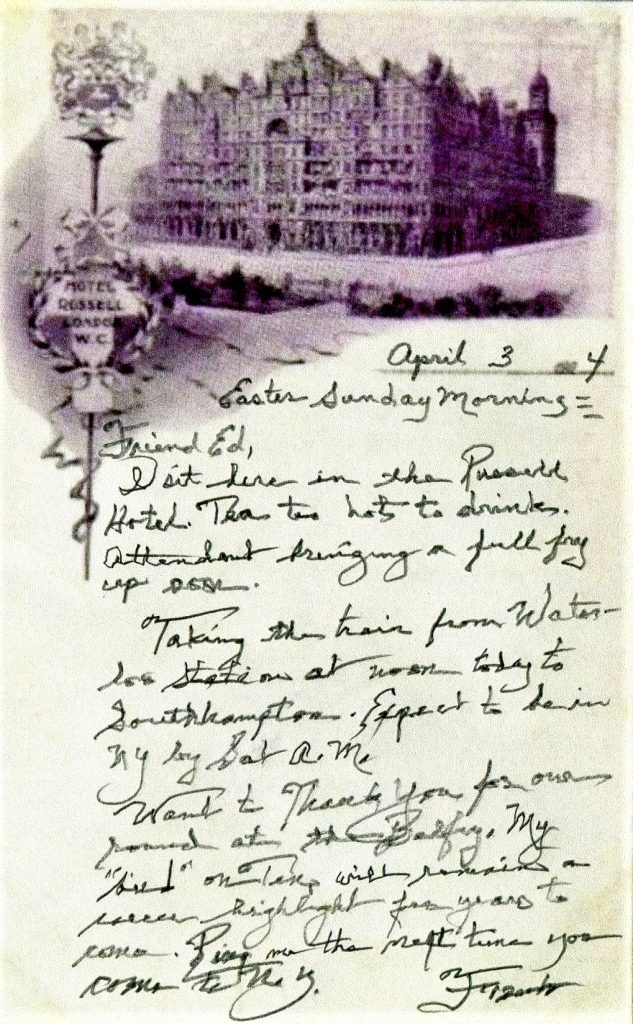 HOTEL
RUSSELL
LONDON
W.C.
April 3 4
Easter Sunday Morning
Friend Ed,
I sit here in the Russell
Hotel. Tea too hot to drink.
Attendant bringing a full fry
up soon.
Taking the train from Water-
loo Station at noon today to
Southhampton. Expect to be in
NY by Sat A.M.
Want to Thank You for our
round at the Belfry. My
"bird" on Ten, will remain a
career highlight for years to
come. Ring me the next time you
come to N.Y.